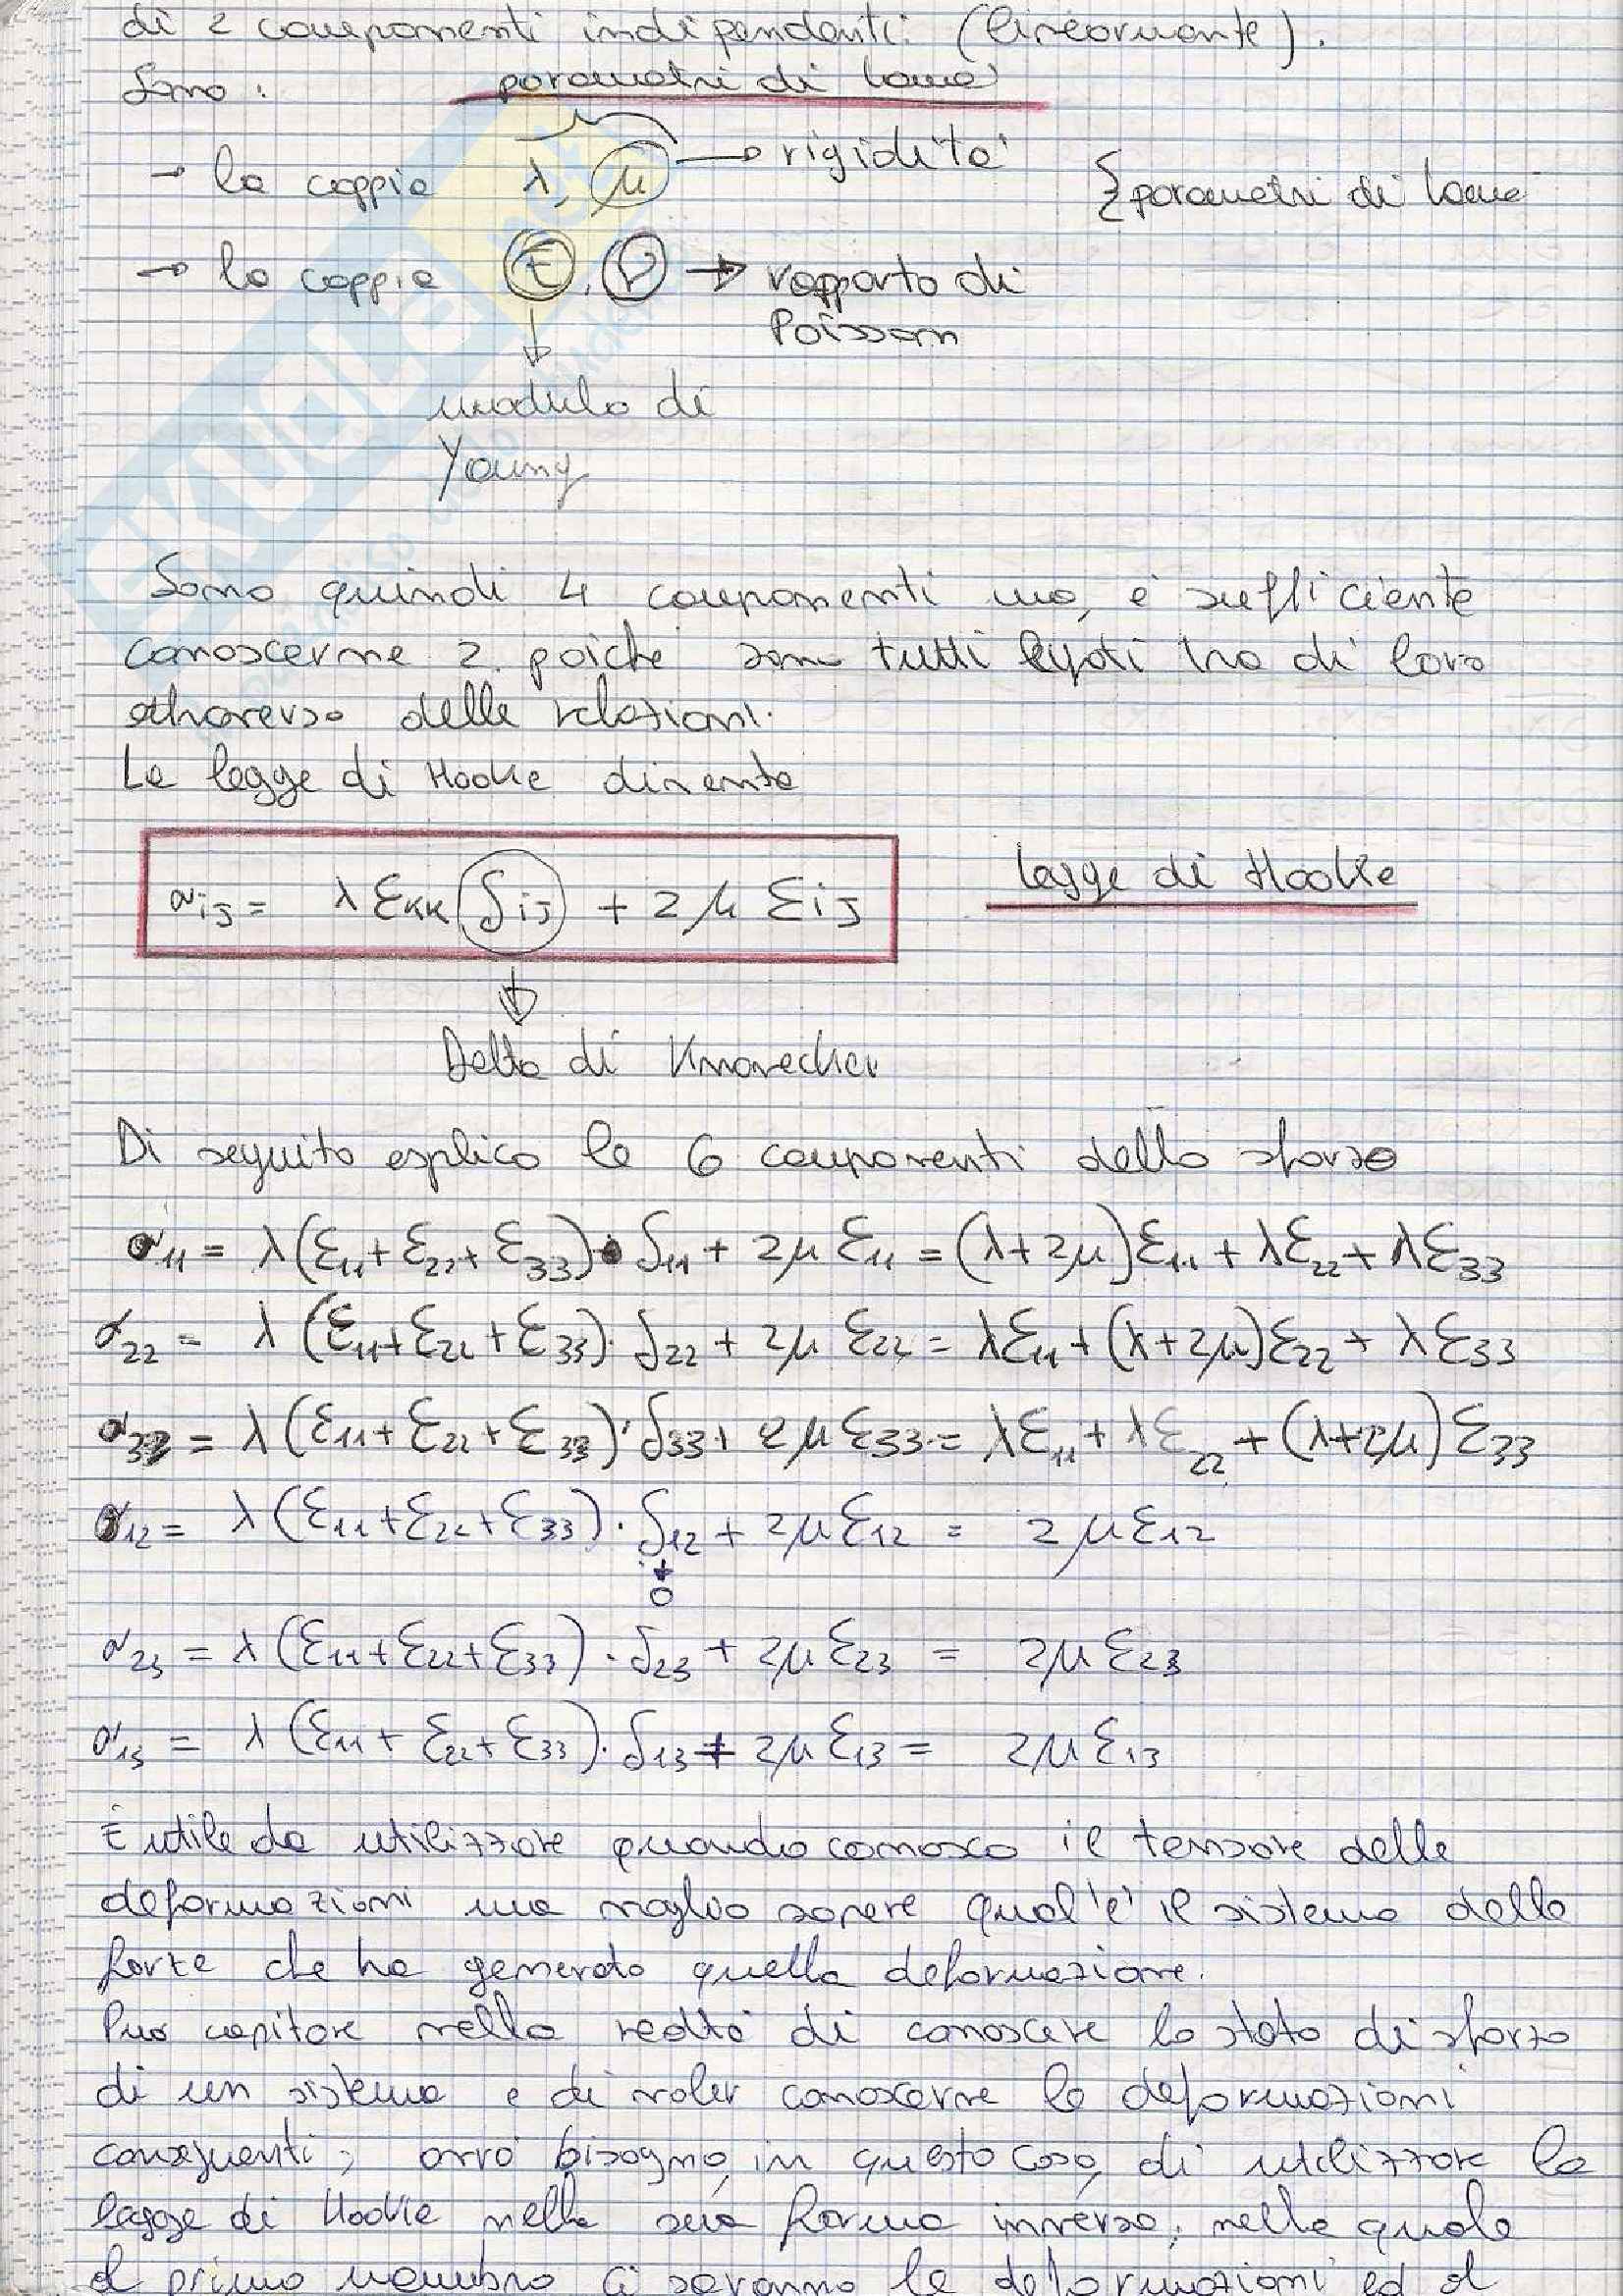 di 2 componenti indipendenti (linearmente).
Sono: parametri di lamé
→ la coppia λ, μ → rigidità } parametri di lamé
→ la coppia E, ν → rapporto di
Poisson
↓
modulo di
Young
Sono quindi 4 componenti ma, è sufficiente
conoscerne 2 poiché sono tutti legati tra di loro
attraverso delle relazioni.
La legge di Hooke diventa
σij = λ εkk δij + 2μ εij legge di Hooke
↓
Delta di Kronecker
Di seguito esplico le 6 componenti dello sforzo
σ11 = λ(ε11+ε22+ε33)·δ11 + 2μ ε11 = (λ+2μ)ε11 + λε22 + λε33
σ22 = λ(ε11+ε22+ε33)·δ22 + 2μ ε22 = λε11 + (λ+2μ)ε22 + λε33
σ33 = λ(ε11+ε22+ε33)·δ33 + 2μ ε33 = λε11 + λε22 + (λ+2μ)ε33
σ12 = λ(ε11+ε22+ε33)·δ12 + 2με12 = 2με12
↓
0
σ23 = λ(ε11+ε22+ε33)·δ23 + 2με23 = 2με23
σ13 = λ(ε11+ε22+ε33)·δ13 + 2με13 = 2με13
È utile da utilizzare quando conosco il tensore delle
deformazioni ma voglio sapere qual'è il sistema delle
forze che ha generato quella deformazione.
Può capitare nella realtà di conoscere lo stato di sforzo
di un sistema e di voler conoscerne le deformazioni
conseguenti; avrò bisogno, in questo caso, di utilizzare la
legge di Hooke nella sua forma inversa, nella quale
al primo membro ci saranno le deformazioni ed al